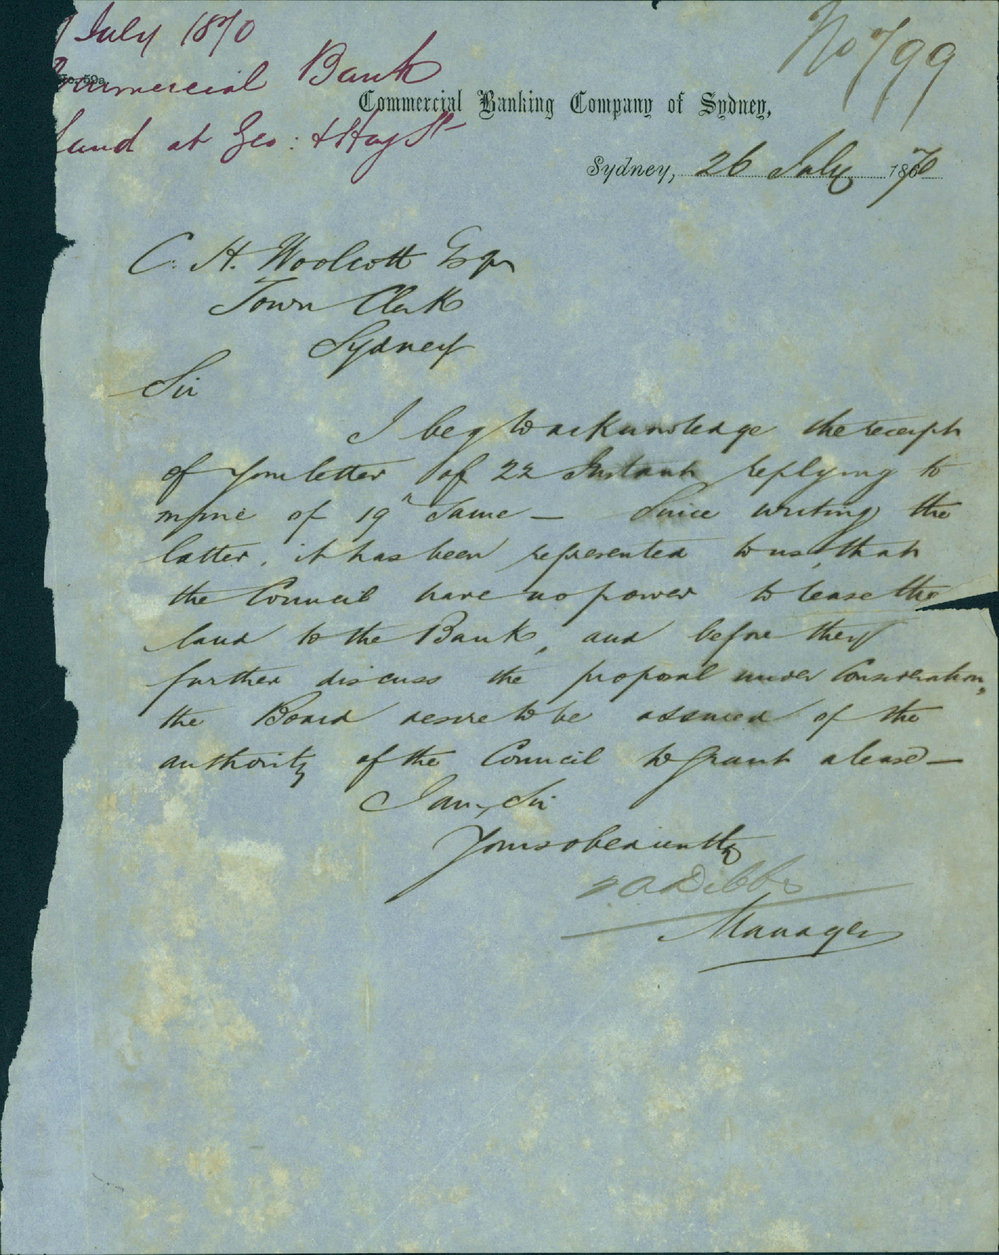 July 1870
Commercial Bank
Land at Geo: & Hay St
No 799
Commercial Banking Company of Sydney,
Sydney, 26 July 1870
C. H. Woolcott Esqr
Town Clerk
Sydney
Sir
I beg to acknowledge the receipt
of your letter of 22 Instant replying to
mine of 19th Same — Since writing the
latter, it has been represented to us, that
the Council have no power to lease the
land to the Bank, and before they
further discuss the proposal under Consideration,
the Board desire to be assured of the
authority of the Council to grant a lease —
I am, Sir
Yours obediently
T. A. Dibbs
Manager